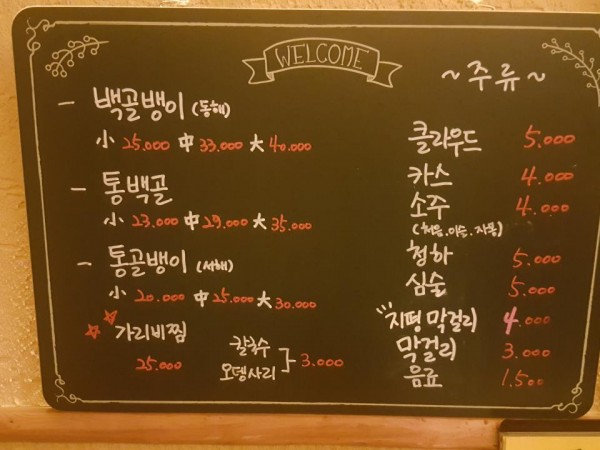 WELCOME
- 백골뱅이 (동해)
小 25.000 中 33.000 大 40.000
- 통백골
小 23.000 中 29.000 大 35.000
- 통골뱅이 (서해)
小 20.000 中 25.000 大 30.000
☆☆ 가리비찜
25.000
칼국수
오뎅사리
3.000
~주류~
클라우드 5.000
카스 4.000
소주 4.000
(처음.이슬.자몽)
청하 5.000
심술 5.000
지평 막걸리 4.000
막걸리 3.000
음료 1.500